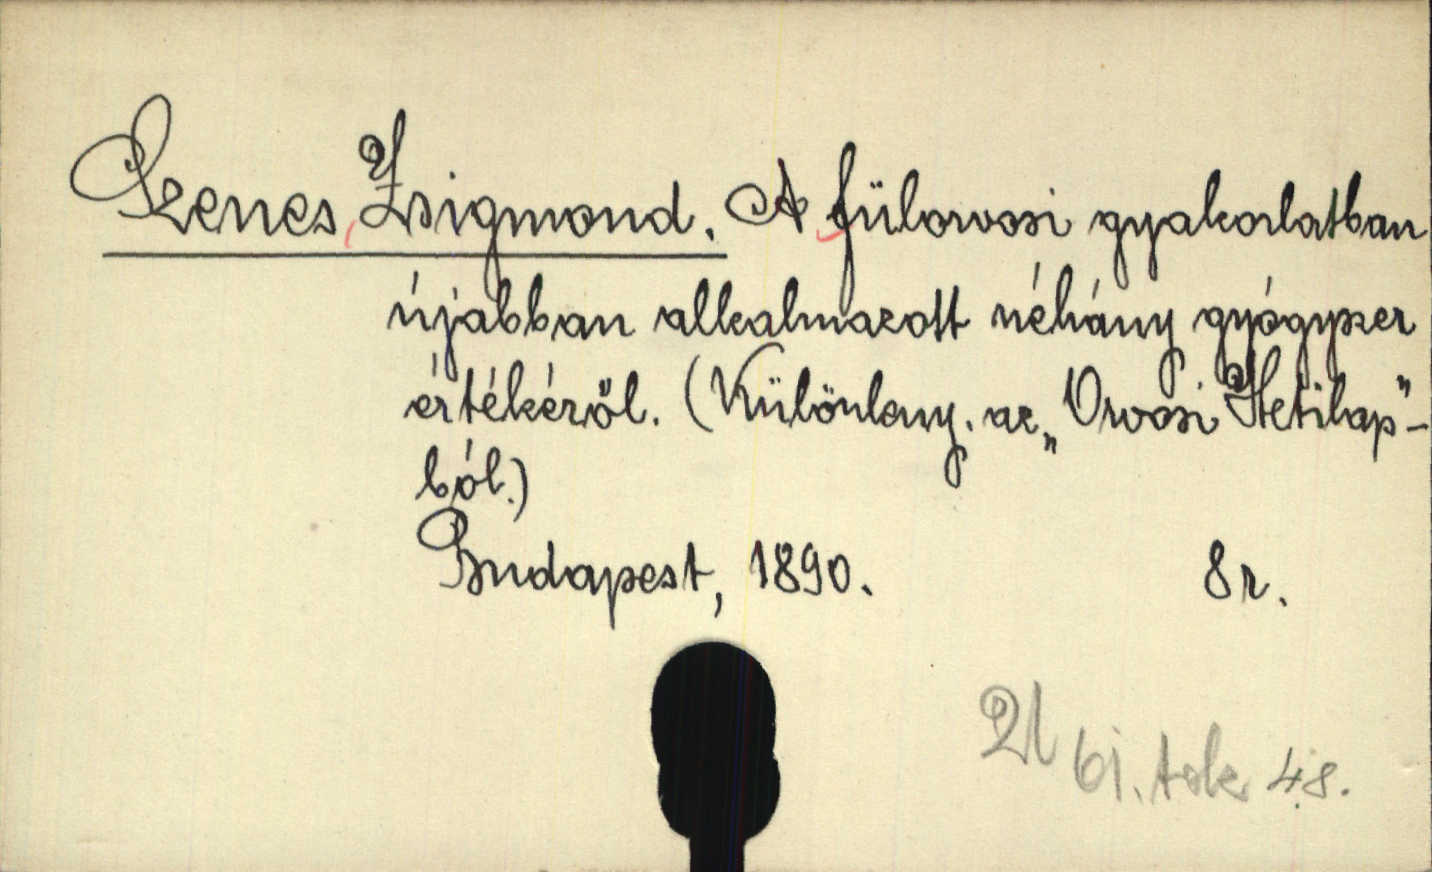 Szenes, Zsigmond. A fülorvosi gyakorlatban
újabban alkalmazott néhány gyógyszer
értékéről. (Különleny. az „Orvosi Hetilap"-
ból.)
Budapest, 1890. 8r.
61. tok 48.